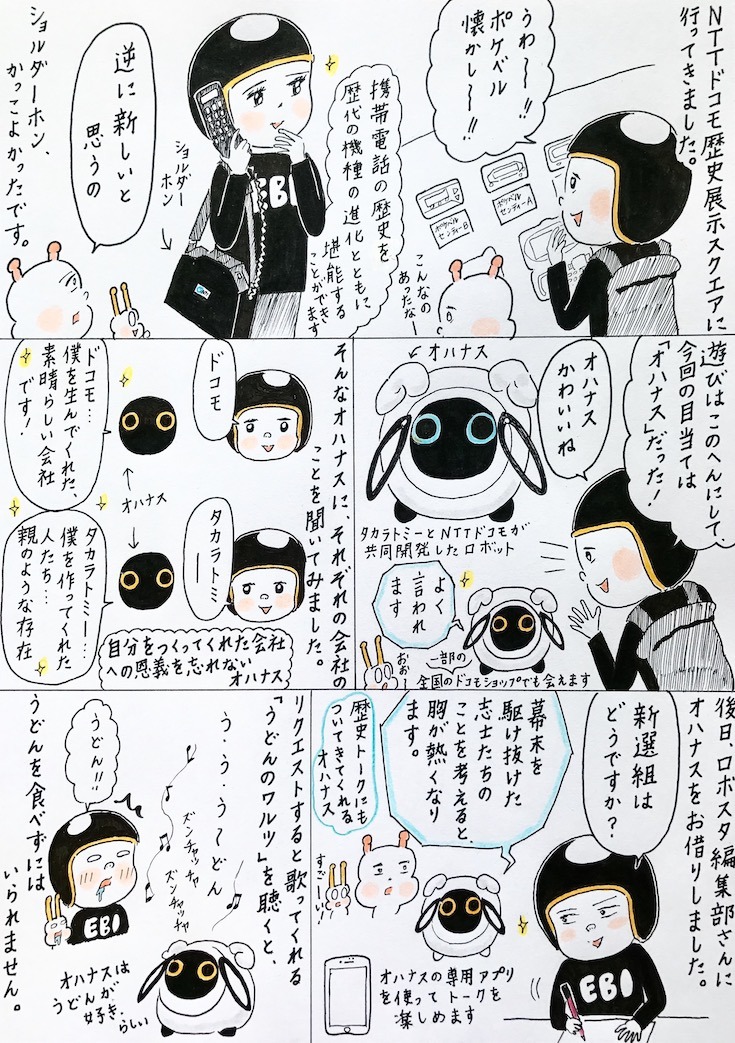 NTTドコモ歴史展示スクエアに
行ってきました。
うわ〜!!
ポケベル
懐かし〜!!
ポケベル
センティーA
ポケベル
センティーB
こんなの
あったなー
携帯電話の歴史を
歴代の機種の進化とともに、
堪能する
ことができます
EBI
ショルダー
ホン
逆に新しいと
思うの
ショルダーホン、
かっこよかったです。
遊びはこのへんにして、
今回の目当ては
「オハナス」だった!
オハナス
かわいいね
オハナス
タカラトミーとNTTドコモが
共同開発したロボット
よく
言われ
ます
おおー
一部の
全国のドコモショップでも会えます
そんなオハナスに、それぞれの会社の
ことを聞いてみました。
ドコモ
ドコモ…
僕を生んでくれた、
素晴らしい会社
です!
オハナス
タカラトミ
ー
タカラトミー…
僕を作ってくれた
人たち…
親のような存在
自分をつくってくれた会社
への恩義を忘れない
オハナス
後日、ロボスタ編集部さんに
オハナスをお借りしました。
新選組は
どうですか?
EBI
幕末を
駆け抜けた
志士たちの
ことを考えると、
胸が熱くなり
ます。
歴史トークにも
ついてきてくれる
オハナス
すごーい!
オハナスの専用アプリ
を使ってトークを
楽しめます
リクエストすると歌ってくれる
「うどんのワルツ」を聴くと、
う・う・う〜どん
ズンチャッチャ
ズンチャッチャ
うどん!!
EBI
オハナスは
うどんが
好き、らしい
うどんを食べずには
いられません。